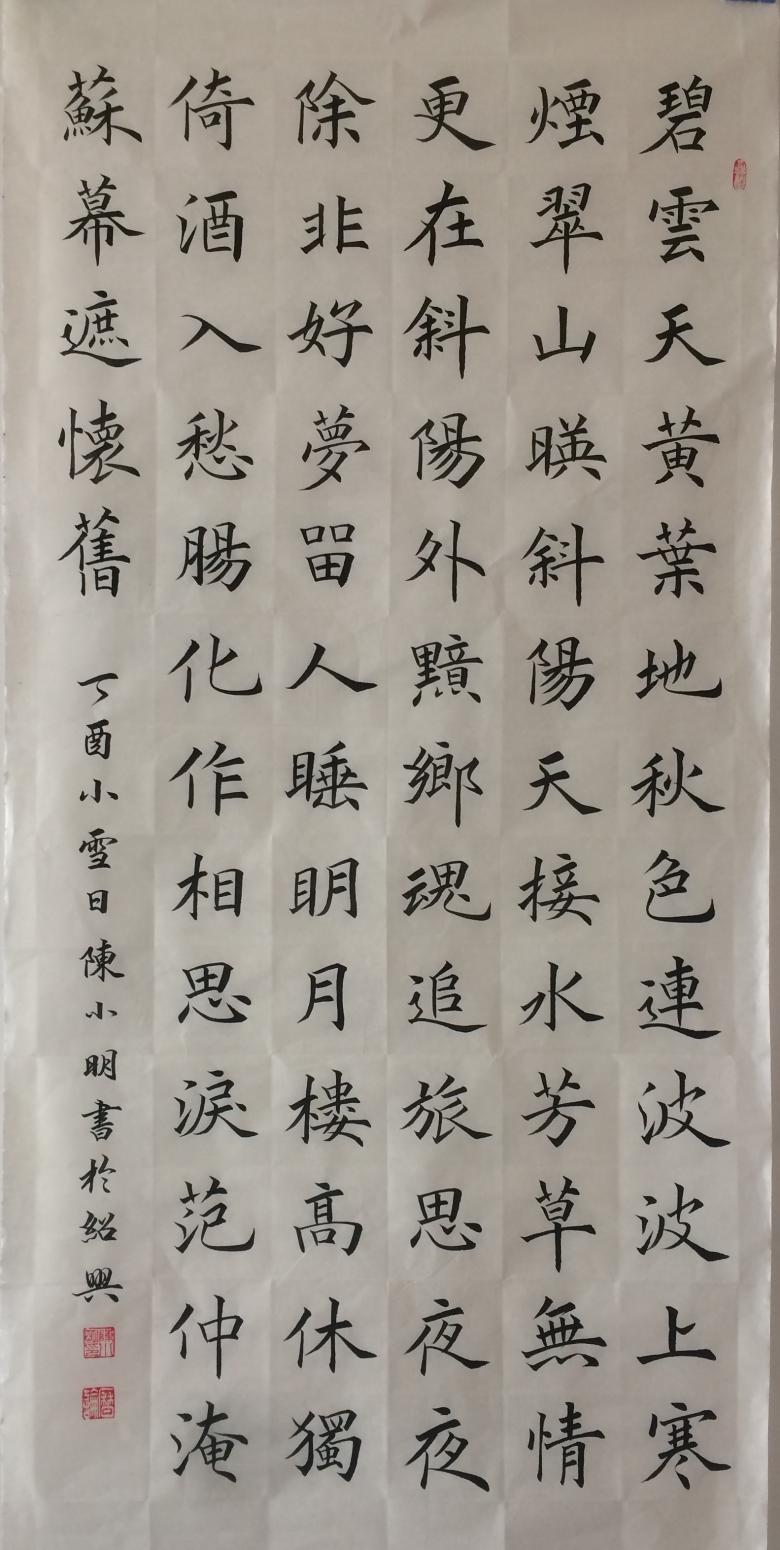 碧雲天黃葉地秋色連波波上寒
煙翠山暎斜陽天接水芳草無情
更在斜陽外黯鄉魂追旅思夜夜
除非好夢畱人睡明月樓高休獨
倚酒入愁腸化作相思淚范仲淹
蘇幕遮懷舊
丁酉小雪日陳小明書於紹興